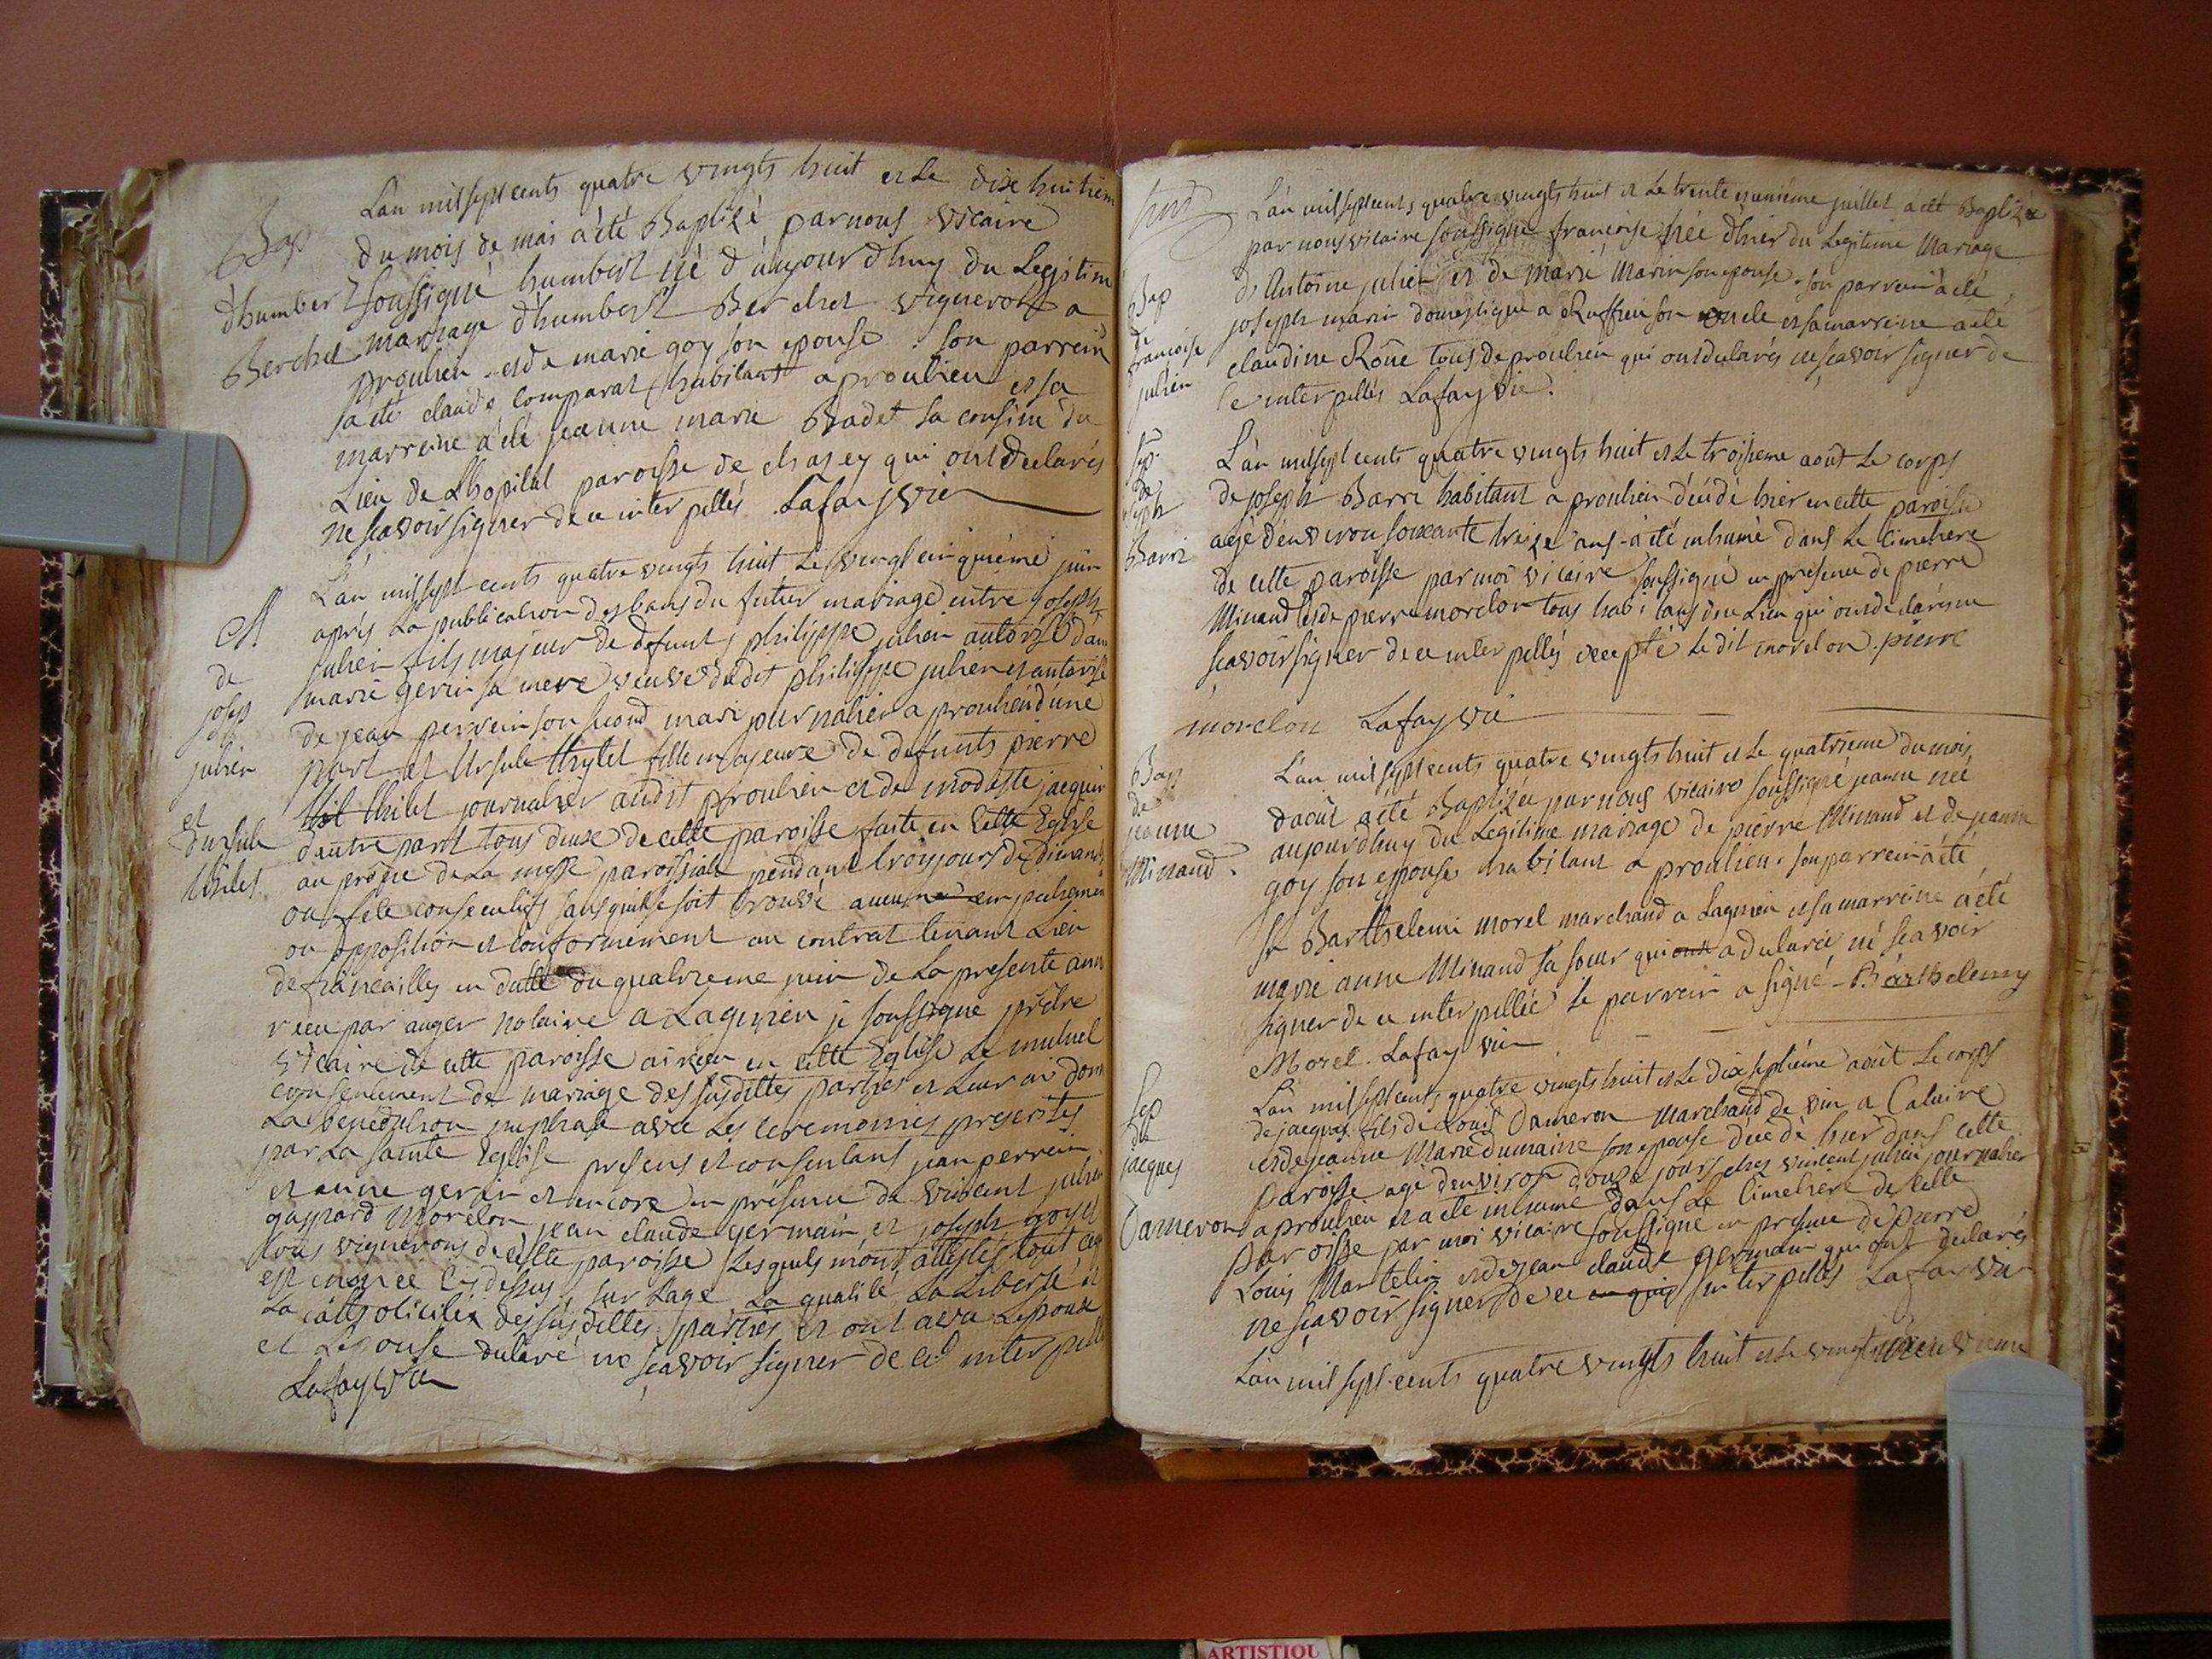 Bap
d'humbert
Berchet
L'an mil sept cents quatre vingts huit et Le dixe huitiem
du mois de mai a été Baptizé par nous vicaire
soussigné humbert né d'aujourdhuy du Legitim
mariage d'humbert Berchet vigneron a
proulieu et de marie goy son epouse. Son parrein
a été claude Comparat habitant a proulieu et sa
marreine a été jeanne marie Badet sa cousine du
Lieu de Lhopital paroisse de chasey qui ont declarés
ne scavoir signer de ce interpellés. Lafay vic
M
de
joseph
julien
et
dursule
thilet
L'an mil sept cents quatre vingts huit Le vingt cinquiéme juin
aprés La publication des bans du futur mariage entre joseph
julien fils majeur de defunt philippe julien autorisé d'an
marie gerin sa mere veuve dudit philippe julien et autorisé
de jean perrein son second mari journalier a proulieu d'une
part et Ursule thilet fille majeure de defunts pierre
thilet journalier audit proulieu et de modeste jacquin
dautre part tous deux de cette paroisse faite en Cette Eglise
au prône de La messe paroissiale pendant trois jours de Dimanch
ou fete consecutifs sans quil se soit trouvé aucun empechemen
ou opposition et conformement au contrat tenant Lieu
de fiancailles en datte du quatrieme juin de La presente ann
recu par auger notaire a Lagnieu je soussigné prêtre
vicaire de cette paroisse ai recu en cette Eglise Le mutuel
consentement de mariage des susdittes parties et Leur ai donn
La benediction nuptiale avec Les ceremonies prescrites
par La sainte Eglise presens et consentans jean perrein
et anne gerin et encore en presence de vincent julien
gaspard Morelon jean claude germain et joseph goy
tous vignerons de cette paroisse Lesquels m'ont attestés tout ce q
est enoncé cy dessus sur Lage La qualité La Liberté et
La catholicité des susdittes parties et ont avec Lepoux
et Lepouse declaré ne scavoir signer de ce interpellé
Lafay vic
huit
Bap
de
francoise
julien
L'an mil sept cents quatre vingts huit et Le trente et uniéme juillet a été Baptizée
par nous vicaire soussigné francoise née d'hier du Legitime Mariage
d'Antoine julien et de marie Marin son epouse. son parrein a été
joseph marin domestique a Ruffieu son oncle et sa marreine a été
claudine Rône tous de proulieu qui ont declarés ne scavoir signer de
ce interpellés Lafay vic.
Sep
de
joseph
Barri
L'an mil sept cents quatre vingts huit et Le troisieme août Le corps
de joseph Barri habitant a proulieu décédé hier en cette paroisse
agé d'environ soixante treize ans a été inhumé dans Le Cimetiere
de cette paroisse par moi vicaire soussigné en presence de pierre
Minand et de pierre morelon tous habitans du Lieu qui ont declarés ne
scavoir signer de ce interpellés excepté Le dit morelon. pierre
morelon Lafay vic
Bap
de
jeanne
Minand.
L'an mil sept cents quatre vingts huit et Le quatrieme du mois
daoût a été Baptizée par nous vicaire soussigné jeanne née
aujourdhuy du Legitime mariage de pierre Minand et de jeanne
goy son epouse habitant a proulieu. son parrein a été
Sr Barthelemi morel marchand a Lagnieu et sa marreine a été
marie anne Minand sa soeur qui ont a declarée ne scavoir
signer de ce interpellée Le parrein a signé - Barthelemy
Morel. Lafay vic
Sep
de
jacques
Dameron
L'an mil sept cents quatre vingts huit et Le dix septieme août Le corps
de jacques fils de Louis Dameron Marchand de vin a Caluire
et de jeanne Marie dumaine son epouse décédé hier dans cette
paroisse agé denviron douze jours chez vincent julien journalier
a proulieu et a été inhumé dans Le Cimetiere de cette
paroisse par moi vicaire soussigné en presence de pierre
Louis Martelin et de jean claude germain qui ont declarés
ne scavoir signer de ce interpellés Lafay vic
L'an mil sept cents quatre vingts huit et Le vingt
ARTISTIQU